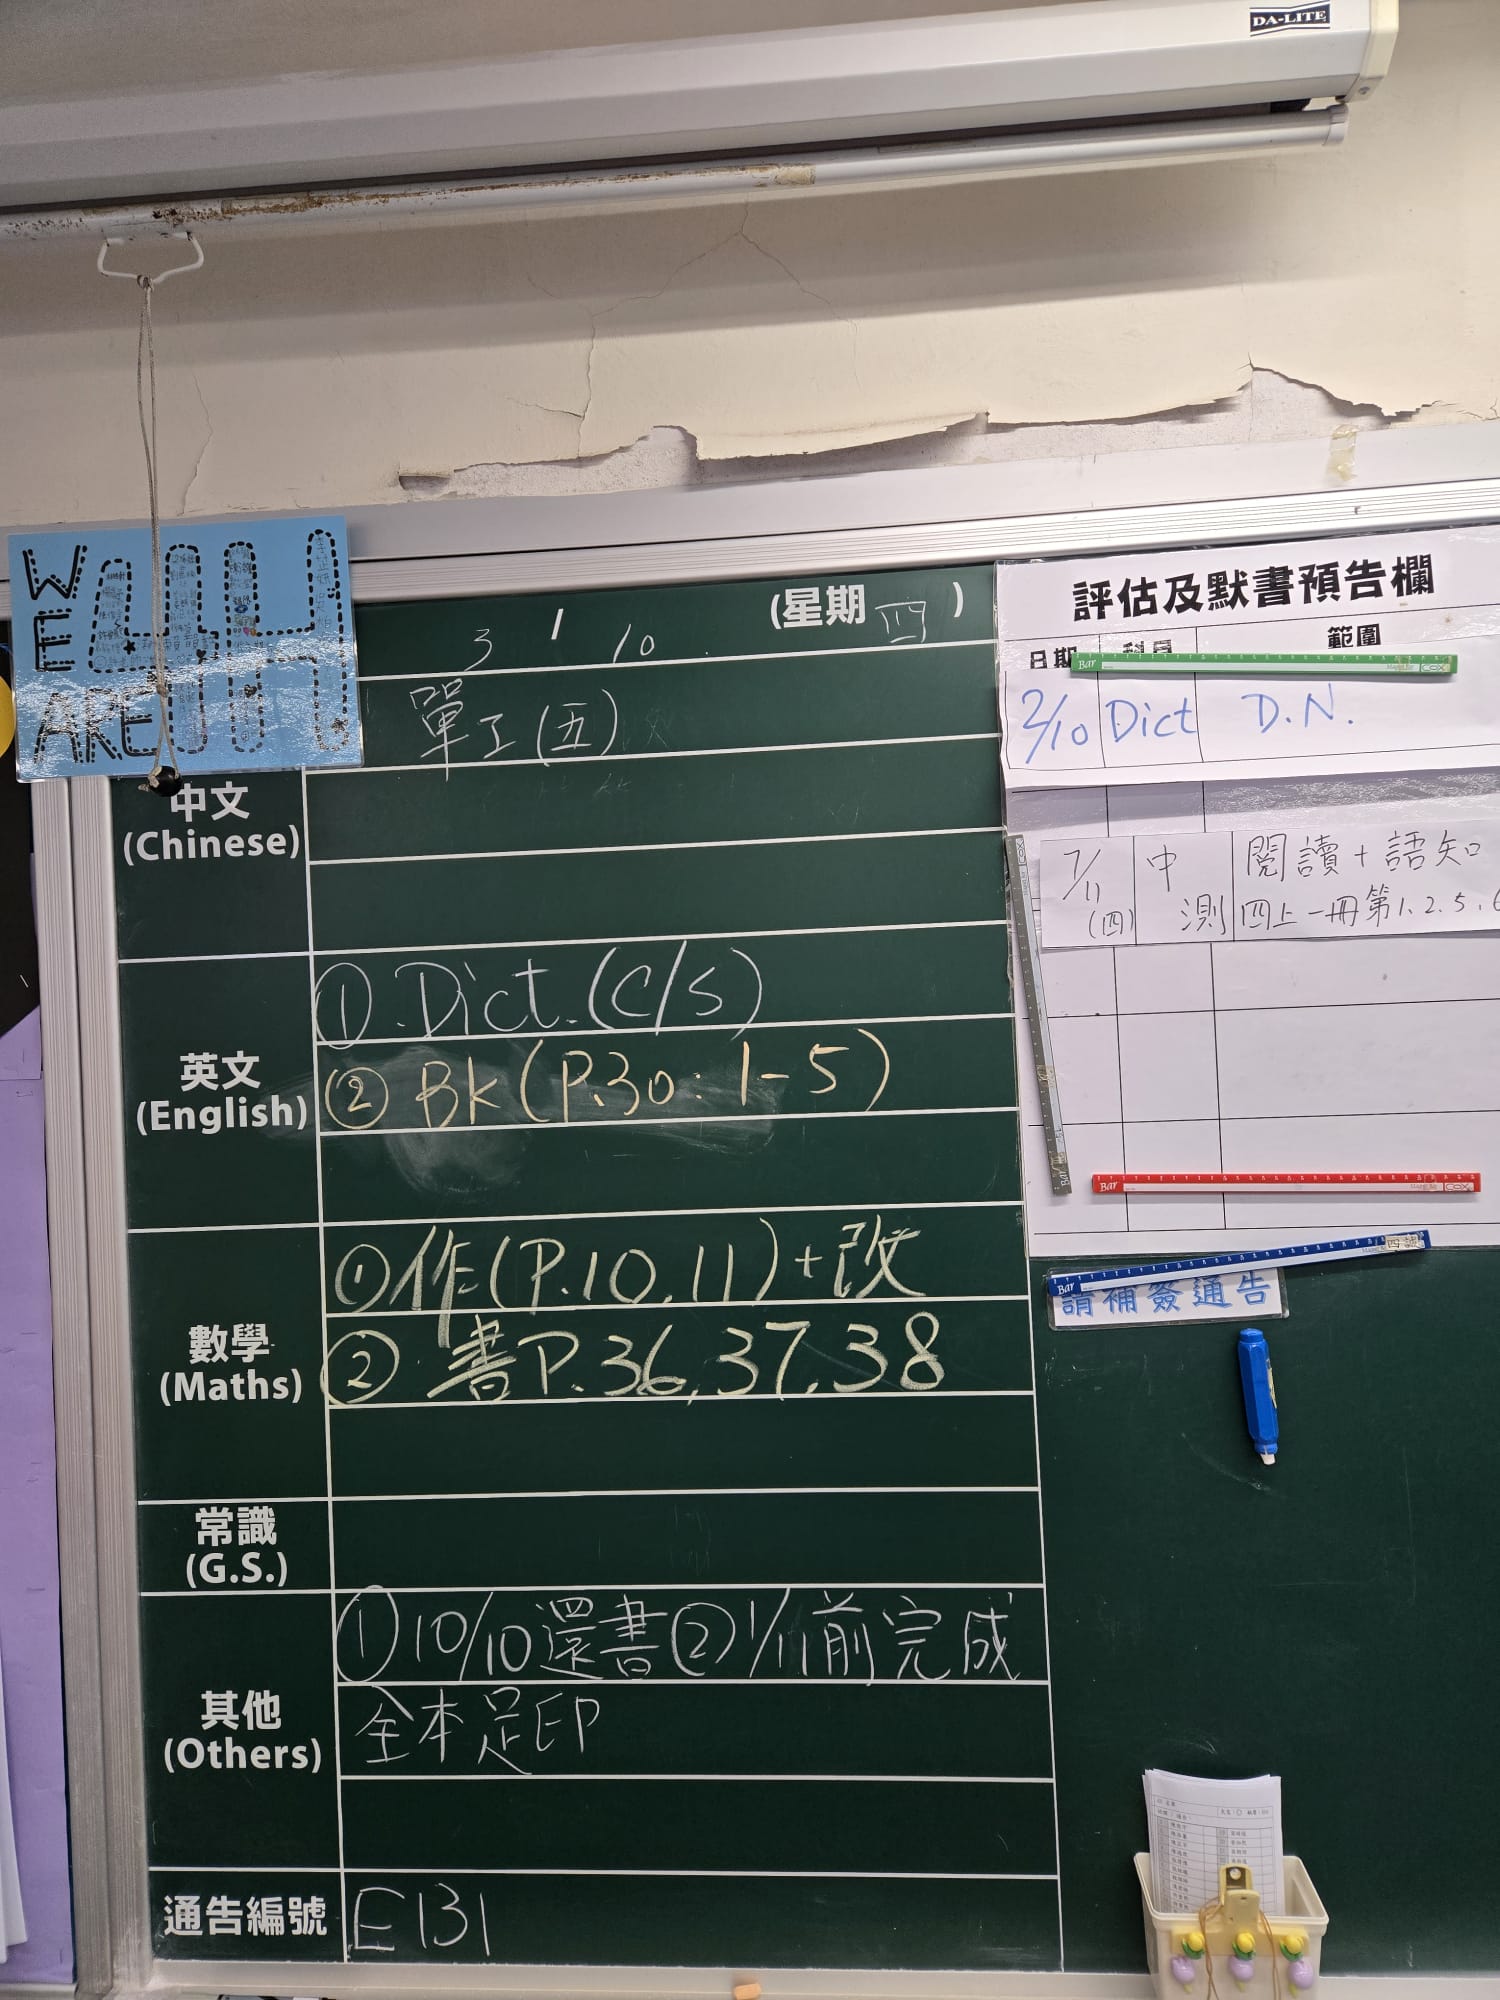 DA-LITE
WE
ARE
3 / 10 (星期 四 )
單工(五)
中文
(Chinese)
英文
(English)
① Dict. (C/S)
② BK (P.30: 1-5)
數學
(Maths)
① 作(P.10, 11)+改
② 書P.36, 37, 38
常識
(G.S.)
其他
(Others)
① 10/10還書 ② 1/11前完成
全本足印
通告編號
E131
評估及默書預告欄
日期 科目 範圍
2/10 Dict D.N.
7/11 (四) 中測 閱讀+語知
四上一冊第1.2.5.6
請補簽通告
Bar
COX
Bar
COX
Bar